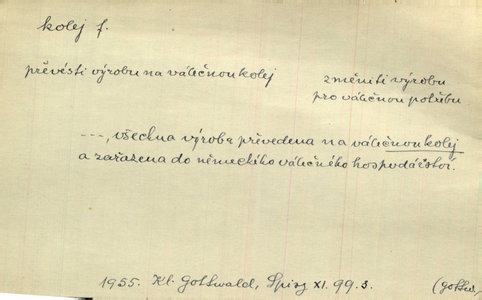 kolej f.
převésti výrobu na válečnou kolej
změniti výrobu
pro válečnou potřebu
---, všechna výroba převedena na válečnou kolej
a zařazena do německého válečného hospodářství.
1955. Kl. Gottwald, Spisy XI. 99 s. (Gottw.)